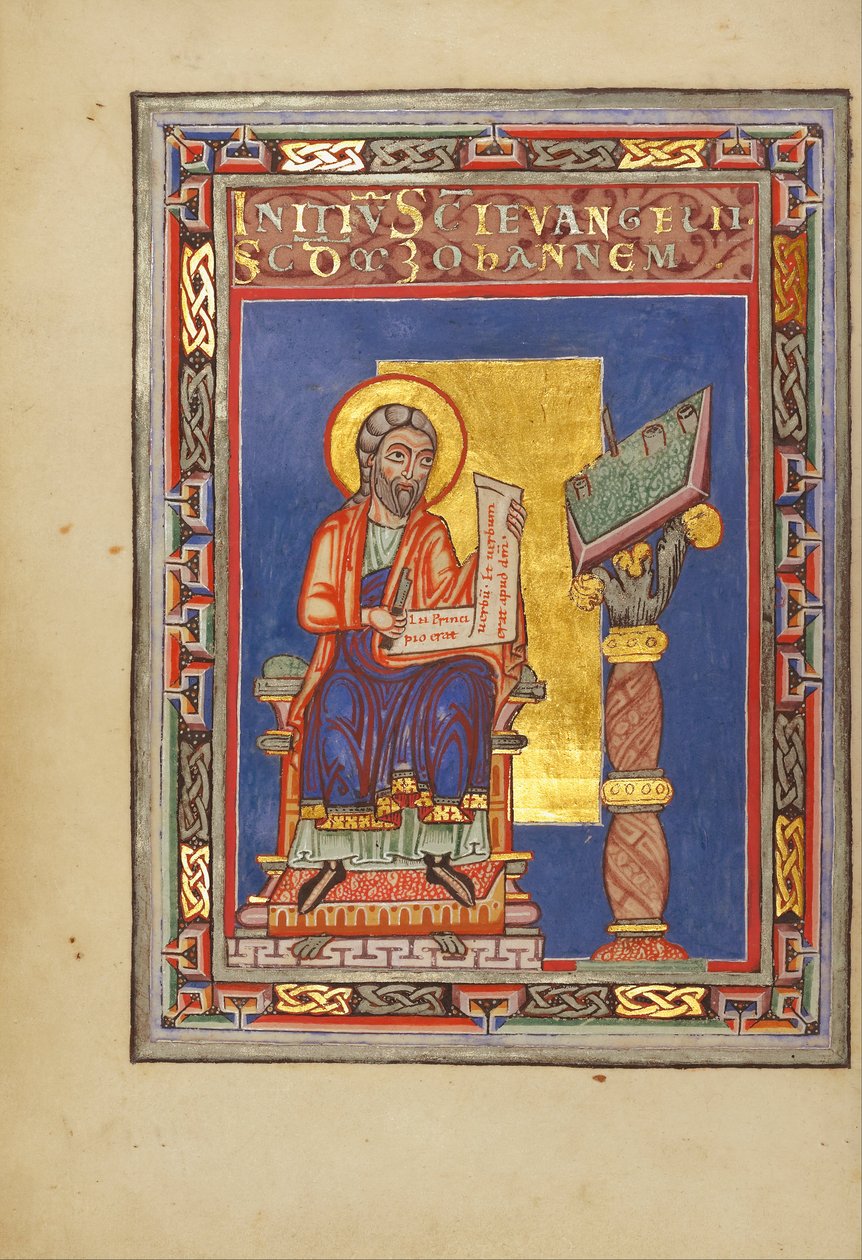 INITIV̄ SC̄I EVANGELII·
SCDM IOHANNEM
In Princi
pio erat
uerbū · Et uerbum
erat apud dm̄·